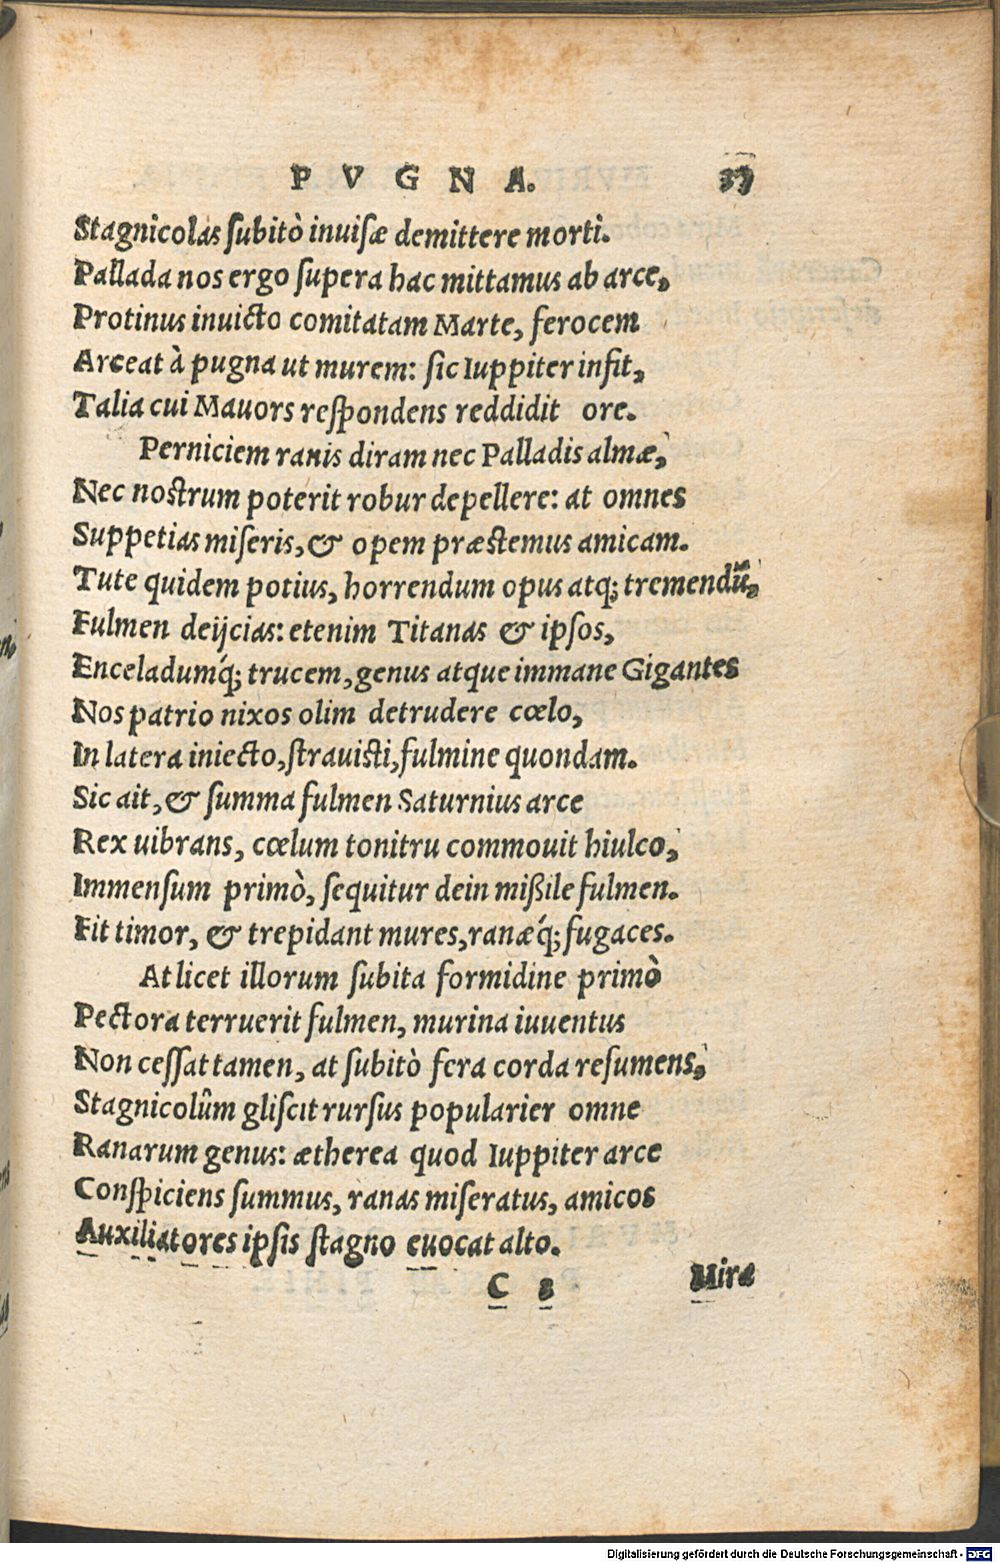 PVGNA. 39
Stagnicolas ſubitò inuiſæ demittere morti.
Pallada nos ergo ſupera hac mittamus ab arce,
Protinus inuicto comitatam Marte, ferocem
Arceat à pugna ut murem: ſic Iuppiter infit,
Talia cui Mauors reſpondens reddidit ore.
Perniciem ranis diram nec Palladis almæ,
Nec noſtrum poterit robur depellere: at omnes
Suppetias miſeris, & opem præſtemus amicam.
Tute quidem potius, horrendum opus atq; tremendũ,
Fulmen deijcias: etenim Titanas & ipſos,
Enceladumq́; trucem, genus atque immane Gigantes
Nos patrio nixos olim detrudere cœlo,
In latera iniecto, ſtrauiſti, fulmine quondam.
Sic ait, & ſumma fulmen Saturnius arce
Rex uibrans, cœlum tonitru commouit hiulco,
Immenſum primò, ſequitur dein mißile fulmen.
Fit timor, & trepidant mures, ranæq́; fugaces.
At licet illorum ſubita formidine primò
Pectora terruerit fulmen, murina iuuentus
Non ceſſat tamen, at ſubitò fera corda reſumens,
Stagnicolûm gliſcit rurſus popularier omne
Ranarum genus: ætherea quod Iuppiter arce
Conſpiciens ſummus, ranas miſeratus, amicos
Auxiliatores ipſis ſtagno euocat alto.
C 8 Miræ
Digitalisierung gefördert durch die Deutsche Forschungsgemeinschaft - DFG